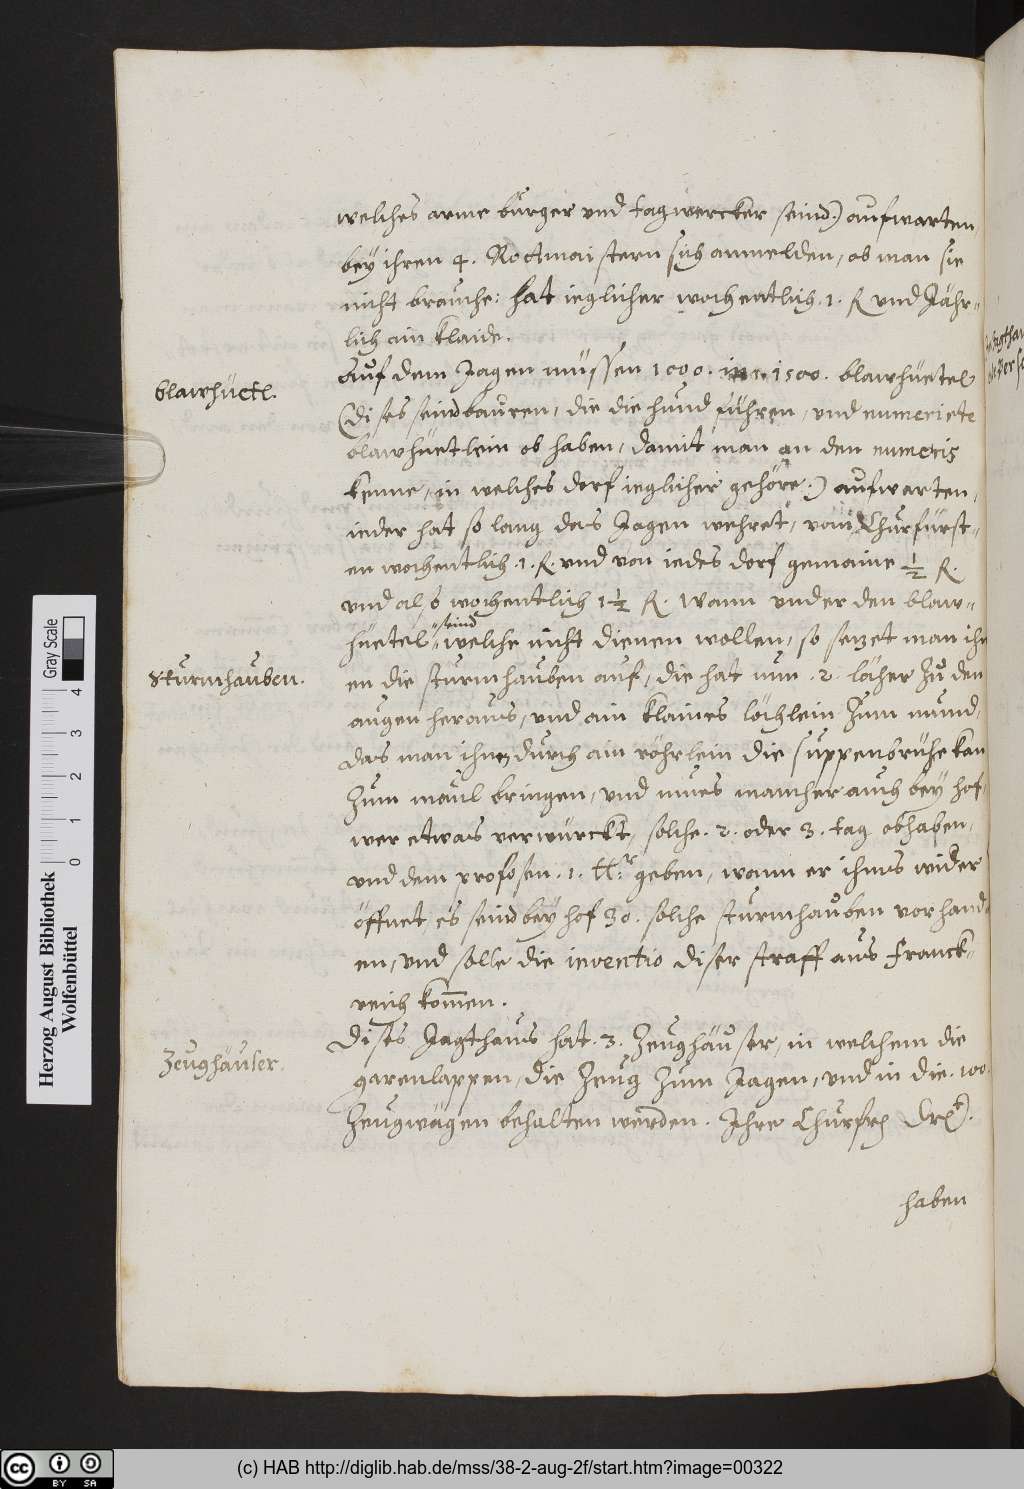 welches arme burger und tagwercker seind.) aufwarten,
bey ihren 4. Rottmaistern sich anmelden, ob man sie
nicht brauche: hat ieglicher wochentlich .1. fl. und Jähr-
lich ain klaide.
blawhüetl.
Auf dem Jagen müssen 1000. in 1500. blawhüetel
(dises seind bauren, die die hund führen, und numerirte
blawhüetlein ob haben, damit man an den numeris
kenne, in welches dorf ieglicher gehöre.) aufwarten,
ieder hat so lang das Jagen wehret, vom Churfürst-
en wochentlich .1. fl. und von iedes dorf gemaine ½ fl.
und also wochentlich 1½ fl. Wann under den blaw-
hüetel seind welche nicht dienen wollen, so sezet man ihn
Sturmhauben.
en die sturmhauben auf, die hat nun .2. läher zu den
augen heraus, und ain klaines löchlein zum mund,
das man ihnen durch ain röhrlein die suppenbrühe kan
zum maul bringen, und mues mancher auch bey hof,
wer etwas verwürckt, solche .2. oder 3. tag obhaben,
und dem profosen .1. tlr. geben, wann er ihms wider
öffnet, es seind bey hof 30. solche sturmhauben vorhand-
en, und solle die inventio diser straff aus Franck-
reich kommen.
Zeughäuser.
Dises Jagthaus hat .3. Zeughäuser, in welchem die
garenlappen, die Zeug zum Jagen, und in die .100.
Zeugwägen behalten werden. Ihre Churfr. Drt.
haben
Herzog August Bibliothek
Wolfenbüttel
Gray Scale
0 1 2 3 4
(c) HAB http://diglib.hab.de/mss/38-2-aug-2f/start.htm?image=00322
cc BY SA